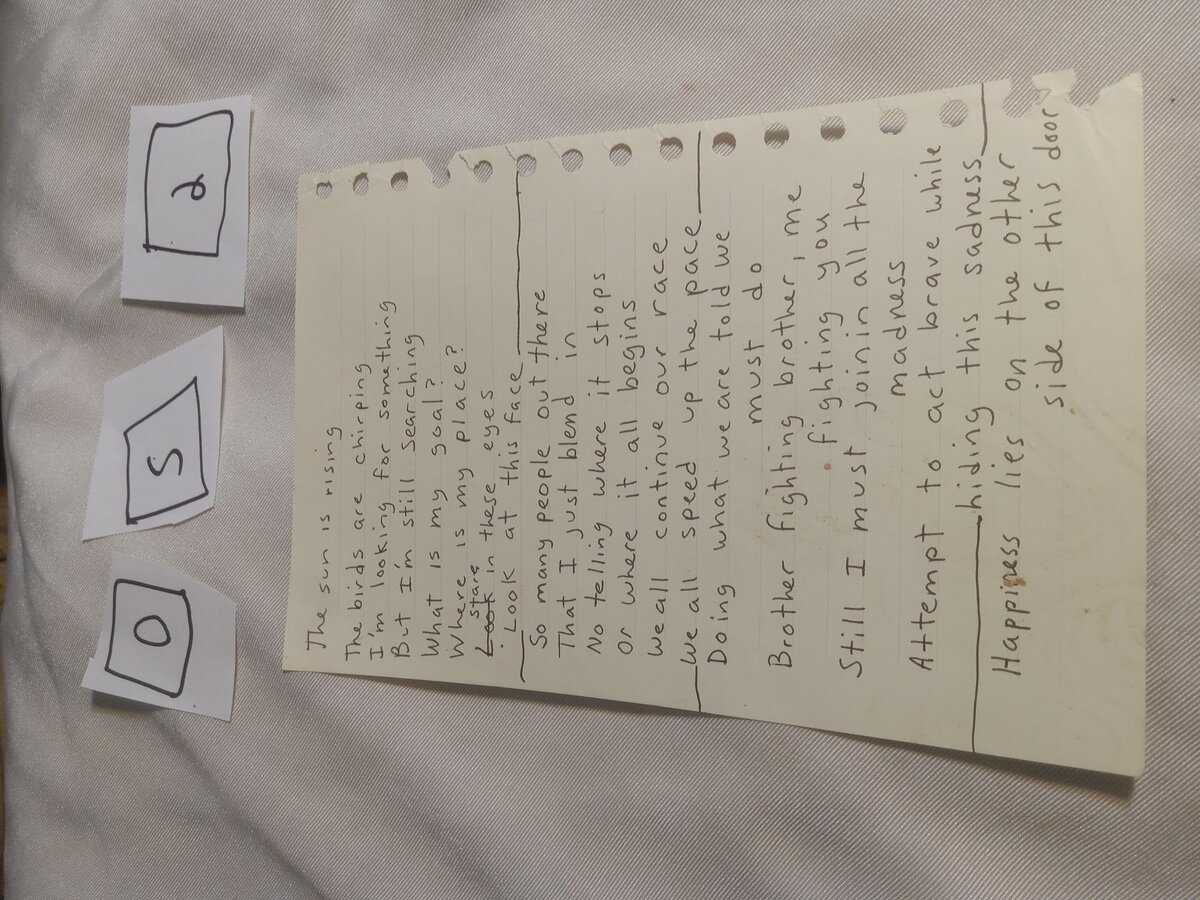 O S 2
The sun is rising
The birds are chirping
I'm looking for something
But I'm still searching
What is my goal?
Where is my place?
stare
Look in these eyes
Look at this face
So many people out there
That I just blend in
No telling where it stops
Or where it all begins
We all continue our race
We all speed up the pace
Doing what we are told we
must do
Brother fighting brother, me
fighting you
Still I must join in all the
madness
Attempt to act brave while
hiding this sadness
Happiness lies on the other
side of this door